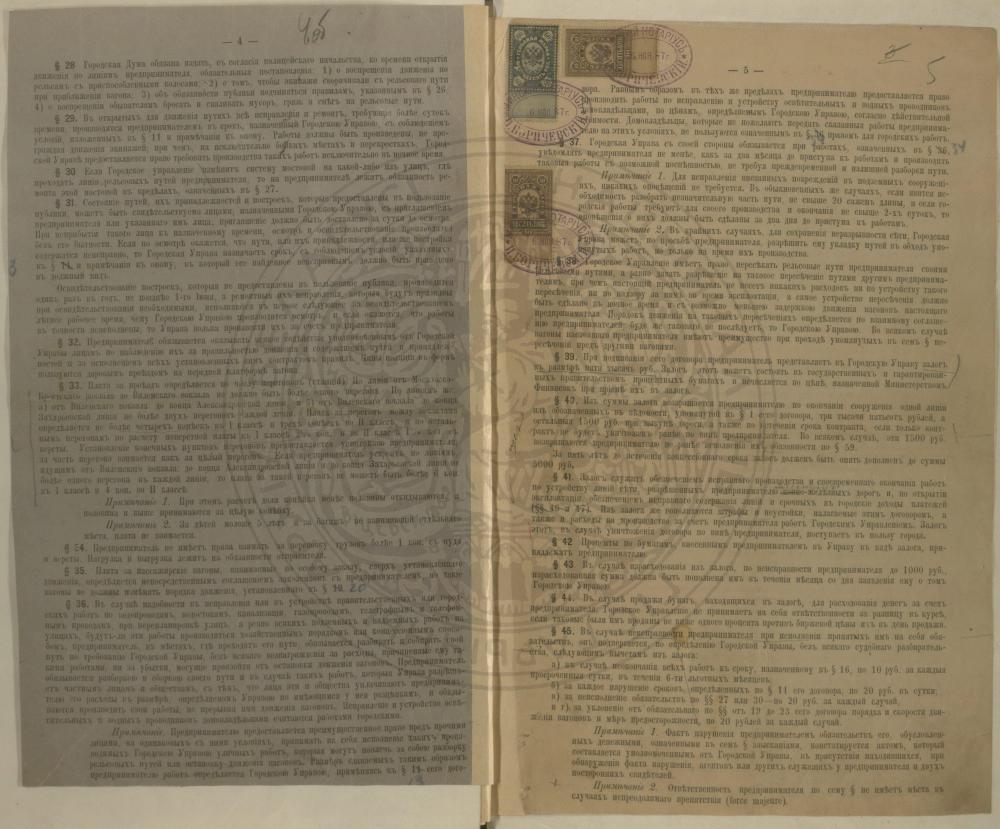 — 4 —
§ 28 Городская Дума обязана издать, съ согласія полицейскаго начальства, ко времени открытія
движенія по линіямъ предпринимателя, обязательныя постановленія: 1) о воспрещеніи движенія по
рельсамъ съ приспособленными колесами; 2) о томъ, чтобы экипажи сворачивали съ рельсоваго пути
при приближеніи вагона; 3) объ обязанности публики подчиняться правиламъ, указаннымъ въ § 26,
4) о воспрещеніи обывателямъ бросать и сваливать мусоръ, грязь и снѣгъ на рельсовые пути.
§ 29. Въ открытыхъ для движенія путяхъ всѣ исправленія и ремонтъ, требующіе болѣе сутокъ
времени, производятся предпринимателемъ въ срокъ, назначенный Городскою Управою, съ соблюденіемъ
условій, изложенныхъ въ § 11 и примѣчаніи къ оному. Работы должны быть произведены, не пре-
граждая движенія экипажей; при чемъ, на исключительно бойкихъ мѣстахъ и перекресткахъ, Город-
ской Управѣ предоставляется право требовать производства такихъ работъ исключительно въ ночное время.
§ 30 Если Городское управленіе замѣнитъ систему мостовой на какой-либо изъ улицъ, гдѣ
проходятъ линіи рельсовыхъ путей предпринимателя, то на предпринимателѣ лежитъ обязанность ре-
монта этой мостовой въ предѣлахъ, означенныхъ въ § 27.
§ 31. Состояніе путей, ихъ принадлежностей и построекъ, которыя предоставлены въ пользованіе
публики, можетъ быть свидѣтельствуемо лицами, назначенными Городскою Управою, въ присутствіи
предпринимателя или указаннаго имъ лица; приглашеніе должно быть доставлено за сутки до осмотра.
При неприбытіи такого лица къ назначенному времени, осмотръ и освидѣтельствованіе производятся
безъ его бытности. Если по осмотрѣ окажется, что пути, или ихъ принадлежности, или же постройки
содержатся неисправно, то Городская Управа назначаетъ срокъ, съ соблюденіемъ условій, указанныхъ
въ § 11, и примѣчаніи къ оному, въ который все найденное неисправнымъ должно быть приведено
въ должный видъ.
Освидѣтельствованіе построекъ, которыя не предоставлены въ пользованіе публики, производится
одинъ разъ въ годъ, не позднѣе 1-го Іюня, а ремонтныя ихъ исправленія, которыя будутъ признаны
при освидѣтельствованіи необходимыми, исполняются въ первое слѣдующее за освидѣтельствованіемъ
лѣтнее рабочее время, чему Городскою Управою производится осмотръ. Если окажется, что работы
въ точности неисполнены, то Управа вольна произвести ихъ на счетъ предпринимателя.
§ 32. Предприниматель обязывается оказывать всякое содѣйствіе уполномоченнымъ отъ Городской
Управы лицамъ по наблюденію ихъ за правильностью движенія и содержаніемъ пути и принадлеж-
ностей и за исполненіемъ всѣхъ установленныхъ симъ контрактомъ правилъ. Чины полиціи въ формѣ
пользуются даровымъ проѣздомъ на передней платформѣ вагона.
§ 33. Плата за проѣздъ опредѣляется по числу перегоновъ (станцій). По линіи отъ Московско-
Брестскаго вокзала до Виленскаго вокзала не должно быть болѣе одного перегона. По линіямъ же:
а) отъ Виленскаго вокзала до конца Александровской линіи и б) отъ Виленскаго вокзала до конца
Захарьевской линіи не болѣе двухъ перегоновъ каждой линіи. Плата за перегонъ между вокзалами
опредѣляется не болѣе четырехъ копѣекъ въ I классѣ и трехъ копѣекъ во II классѣ, а по осталь-
нымъ перегонамъ по расчету поверстной платы въ I классѣ 2½ коп. и во II классѣ 1½ коп. съ
версты. Установленіе конечныхъ пунктовъ перегоновъ предоставляется усмотрѣнію предпринимателя;
за часть перегона платится какъ за цѣлый перегонъ. Если предприниматель устроитъ по линіямъ
идущимъ отъ Виленскаго вокзала: до конца Александровской линіи и до конца Захарьевской линіи не
болѣе одного перегона въ каждой линіи, то плата за такой перегонъ не можетъ быть болѣе 6 коп.
въ I классѣ и 4 коп. во II классѣ.
Примѣчаніе 1. При этомъ расчетѣ доли копѣйки менѣе половины откидываются, а
половина и выше принимаются за цѣлую копѣйку.
Примѣчаніе 2. За дѣтей моложе 5 лѣтъ и за багажъ, не занимающій отдѣльнаго
мѣста, плата не взимается.
§ 34. Предприниматель не имѣетъ права взимать за перевозку грузовъ болѣе 1 коп. съ пуда
и версты. Нагрузка и выгрузка лежитъ на обязанности отправителя.
§ 35. Плата за пассажирскіе вагоны, нанимаемые по особому заказу, сверхъ установленнаго
движенія, опредѣляется непосредственнымъ соглашеніемъ заказчиковъ съ предпринимателемъ, но такіе
вагоны не должны измѣнять порядка движенія, установленнаго въ § 20
§ 36. Въ случаѣ надобности въ исправленіи или въ устройствѣ правительственныхъ или город-
скихъ работъ по водопроводамъ, водостокамъ, канализаціи, газопроводамъ, телеграфнымъ и телефон-
нымъ проводамъ, при перепланировкѣ улицъ, а равно всякихъ подземныхъ и надземныхъ работъ на
улицахъ, будутъ-ли эти работы производиться хозяйственнымъ порядкомъ или концессіоннымъ спосо-
бомъ, предприниматель, въ мѣстахъ, гдѣ проходятъ его пути, обязывается разбирать и собирать свой
путь по требованію Городской Управы, безъ всякаго вознагражденія за расходы, причиненные ему та-
кими работами, ни за убытки, могущіе произойти отъ остановки движенія вагоновъ. Предприниматель
обязывается разборкою и сборкою своего пути и въ случаѣ такихъ работъ, которыя Управа разрѣшитъ
отъ частнымъ лицамъ и обществамъ, съ тѣмъ, что лица эти и общества уплачиваютъ предпринима-
телю его расходы въ размѣрѣ, опредѣляемомъ Управою по имѣющимся у нея расцѣнкамъ, и обязы-
ваются производить свои работы, не прерывая имъ движенія вагоновъ. Исправленіе и устройство освѣ-
тительныхъ и водныхъ проводниковъ домовладѣльцами считаются работами городскими.
Примѣчаніе. Предпринимателю предоставляется преимущественное право предъ прочими
лицами, на одинаковыхъ съ ними условіяхъ, принимать на себя исполненіе такихъ произ-
водимыхъ Городскою Управою уличныхъ работъ, которыя могутъ повлечь за собою разборку
рельсовыхъ путей или остановку движенія вагоновъ. Размѣръ сдаваемыхъ такимъ образомъ
предпринимателю работъ опредѣляется Городскою Управою, примѣняясь къ § 14 сего дого-
— 5 —
5
вора. Равнымъ образомъ въ тѣхъ же предѣлахъ предпринимателю предоставляется право
производить работы по исправленію и устройству освѣтительныхъ и водныхъ проводниковъ
домовладѣльцами, по цѣнамъ, опредѣляемымъ Городскою Управою, согласно дѣйствительной
стоимости. Домовладѣльцы, которые не пожелаютъ передать сказанныя работы предпринима-
телю на этихъ условіяхъ, не пользуются означеннымъ въ § правомъ для городскихъ работъ.
§ 37. Городская Управа съ своей стороны обязывается при работахъ, означенныхъ въ § 36, 34
увѣдомлять предпринимателя не менѣе, какъ за два мѣсяца до приступа къ работамъ и производить
таковыя работы съ должной поспѣшностью, не требуя преждевременной и излишней разборки пути.
Примѣчаніе 1. Для исправленія внезапныхъ поврежденій въ подземныхъ сооружені-
яхъ, никакихъ оповѣщеній не требуется. Въ обыкновенныхъ же случаяхъ, если явится не-
обходимость разобрать незначительную часть пути, не свыше 20 сажень длины, и если го-
родскія работы требуютъ для своего производства и окончанія не свыше 2-хъ сутокъ, то
оповѣщенія о нихъ должны быть сдѣланы за два дня до приступа къ работамъ.
Примѣчаніе 2. Въ крайнихъ случаяхъ, для сохраненія неразрывности сѣти, Городская
Управа можетъ, по просьбѣ предпринимателя, разрѣшить ему укладку путей въ обходъ упо-
мянутыхъ работъ, но только на время ихъ производства.
§ 38. Городское Управленіе имѣетъ право пересѣкать рельсовые пути предпринимателя своими
рельсовыми путями, а равно давать разрѣшеніе на таковое пересѣченіе путями другимъ предпринима-
телямъ, при чемъ настоящій предприниматель не несетъ никакихъ расходовъ ни по устройству такого
пересѣченія, ни по надзору за нимъ во время эксплоатаціи, а самое устройство пересѣченія должно
быть сдѣлано въ ночное время и съ возможно меньшею задержкою движенія вагоновъ настоящаго
предпринимателя. Порядокъ движенія на таковыхъ пересѣченіяхъ опредѣляется по взаимному соглаше-
нію предпринимателей, буде же таковаго не послѣдуетъ, то Городскою Управою. Во всякомъ случаѣ
вагоны настоящаго предпринимателя имѣютъ преимущество при проходѣ упомянутыхъ въ семъ § пе-
ресѣченій предъ другими вагонами.
§ 39. При подписаніи сего договора предприниматель представляетъ въ Городскую Управу залогъ
въ размѣрѣ пяти тысячъ руб. Залогъ этотъ можетъ состоять въ государственныхъ и гарантирован-
ныхъ правительствомъ, процентныхъ бумагахъ и исчисляется по цѣнѣ, назначенной Министерствомъ
Финансовъ для пріема ихъ въ залогъ.
§ 40. Изъ суммы залога возвращается предпринимателю по окончаніи сооруженія одной линіи
изъ обозначенныхъ въ вѣдомости, упомянутой въ § 1 сего договора, три тысячи пятьсотъ рублей, а
остальные 1500 руб. при выкупѣ дороги, а также по истеченіи срока контракта, если только конт-
рактъ не будетъ уничтоженъ ранѣе по винѣ предпринимателя. Во всякомъ случаѣ, эти 1500 руб.
возвращаются предпринимателю не ранѣе исполненія имъ обязанности по § 59.
За пять лѣтъ до истеченія концессіоннаго срока залогъ долженъ быть опять дополненъ до суммы
5000 руб.
§ 41. Залогъ служитъ обезпеченіемъ исправнаго производства и своевременнаго окончанія работъ
по устройству линій сѣти, разрѣшенныхъ къ сооруженію предпринимателю конно-желѣзныхъ дорогъ и, по открытіи
эксплоатаціи, обезпеченіемъ исправнаго содержанія линій и срочныхъ въ городскія доходы платежей
(§§ 46 и 47). Изъ залога же пополняются штрафы и неустойки, налагаемые этимъ договоромъ, а
также и расходы на производство за счетъ предпринимателя работъ Городскимъ Управленіемъ. Залогъ
этотъ, въ случаѣ уничтоженія договора по винѣ предпринимателя, поступаетъ въ пользу города.
§ 42 Проценты по бумагамъ, внесеннымъ предпринимателемъ въ Управу въ видѣ залога, при-
надлежатъ предпринимателю.
§ 43. Въ случаѣ израсходованія изъ залога, по неисправности предпринимателя до 1000 руб.,
израсходованная сумма должна быть пополнена имъ въ теченіи мѣсяца со дня заявленія ему о томъ
Городскою Управою
§ 44. Въ случаѣ продажи бумагъ, находящихся въ залогѣ, для расходованія денегъ за счетъ
предпринимателя, Городское Управленіе не принимаетъ на себя отвѣтственности за разницу въ курсѣ,
если таковыя были имъ проданы не ниже одного процента противъ биржевой цѣны ихъ въ день продажи.
§ 45. Въ случаѣ неисправности предпринимателя при исполненіи принятыхъ имъ на себя обя-
зательствъ, онъ подвергается, по опредѣленію Городской Управы, безъ всякаго судебнаго разбиратель-
ства, слѣдующимъ вычетамъ изъ залога:
а) въ случаѣ неокончанія всѣхъ работъ къ сроку, назначенному въ § 16, по 10 руб. за каждыя
просроченныя сутки, въ теченіи 6-ти льготныхъ мѣсяцевъ,
б) за каждое нарушеніе сроковъ, опредѣленныхъ по § 11 его договора, по 20 руб. въ сутки,
в) за неисполненіе обязательствъ по §§ 27 или 30—по 20 руб. за каждый случай,
и г) за уклоненіе отъ обязательнаго по §§ отъ 19 до 25 сего договора порядка и скорости дви-
женія вагоновъ и мѣръ предосторожности, по 20 рублей за каждый случай.
Примѣчаніе 1. Фактъ нарушенія предпринимателемъ обязательствъ его, обусловлен-
ныхъ денежными, означенными въ семъ § взысканіями, констатируется актомъ, который
составляется уполномоченнымъ отъ Городской Управы, въ присутствіи находившихся, при
обнаруженіи факта нарушенія, агентовъ или другихъ служащихъ у предпринимателя и двухъ
постороннихъ свидѣтелей.
Примѣчаніе 2. Отвѣтственность предпринимателя по сему § не имѣетъ мѣста въ
случаяхъ непреодолимаго препятствія (force majeure).